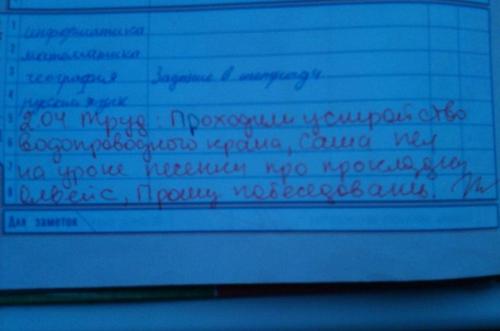 1 информатика
2 математика
3 география Задание в тетради
4 русский язык
5 2.04 Труд: Проходили устройство
6 водопроводного крана, Саша пел
7 на уроке песенки про прокладки
8 Олвейс, Прошу побеседовать.
Для заметок